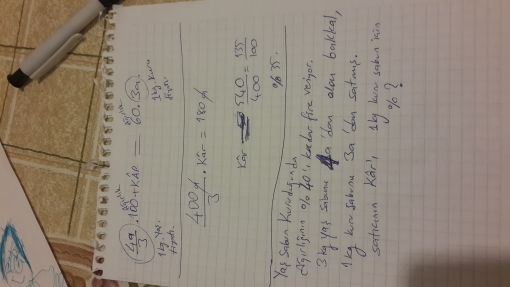 4a/3 . 100 + KÂR = 60 . 3a
1kg Yaş fiyatı
1kg kuru fiyatı
400a/3 . Kâr = 180a
Kâr 540/400 = 135/100
% 35.
Yaş sabun kuruduğunda
ağırlığının % 40'ı kadar fire veriyor.
3 kg yaş sabunu 4a'dan alan bakkal,
1kg kuru sabunu 3a'dan satmış.
satıcının Kâr'ı, 1kg kuru sabun için
% ?